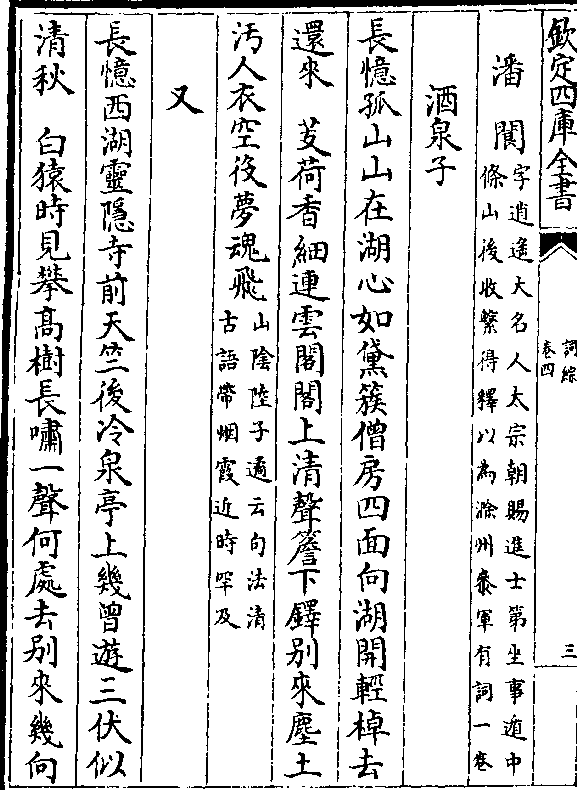 欽定四庫全書
詞綜
卷四
三
潘閬字逍遙大名人太宗朝賜進士第坐事遁中
條山後收繫得釋以為滁州叅軍有詞一卷
酒泉子
長憶孤山山在湖心如黛簇僧房四面向湖開輕棹去
還來 芰荷香細連雲閣閣上清聲簷下鐸别來塵土
汚人衣空役夢魂飛山陰陸子遹云句法清
古語帶烟霞近時罕及
又
長憶西湖靈隱寺前天竺後冷泉亭上幾曾遊三伏似
清秋 白猿時見攀髙樹長嘯一聲何處去别來幾向